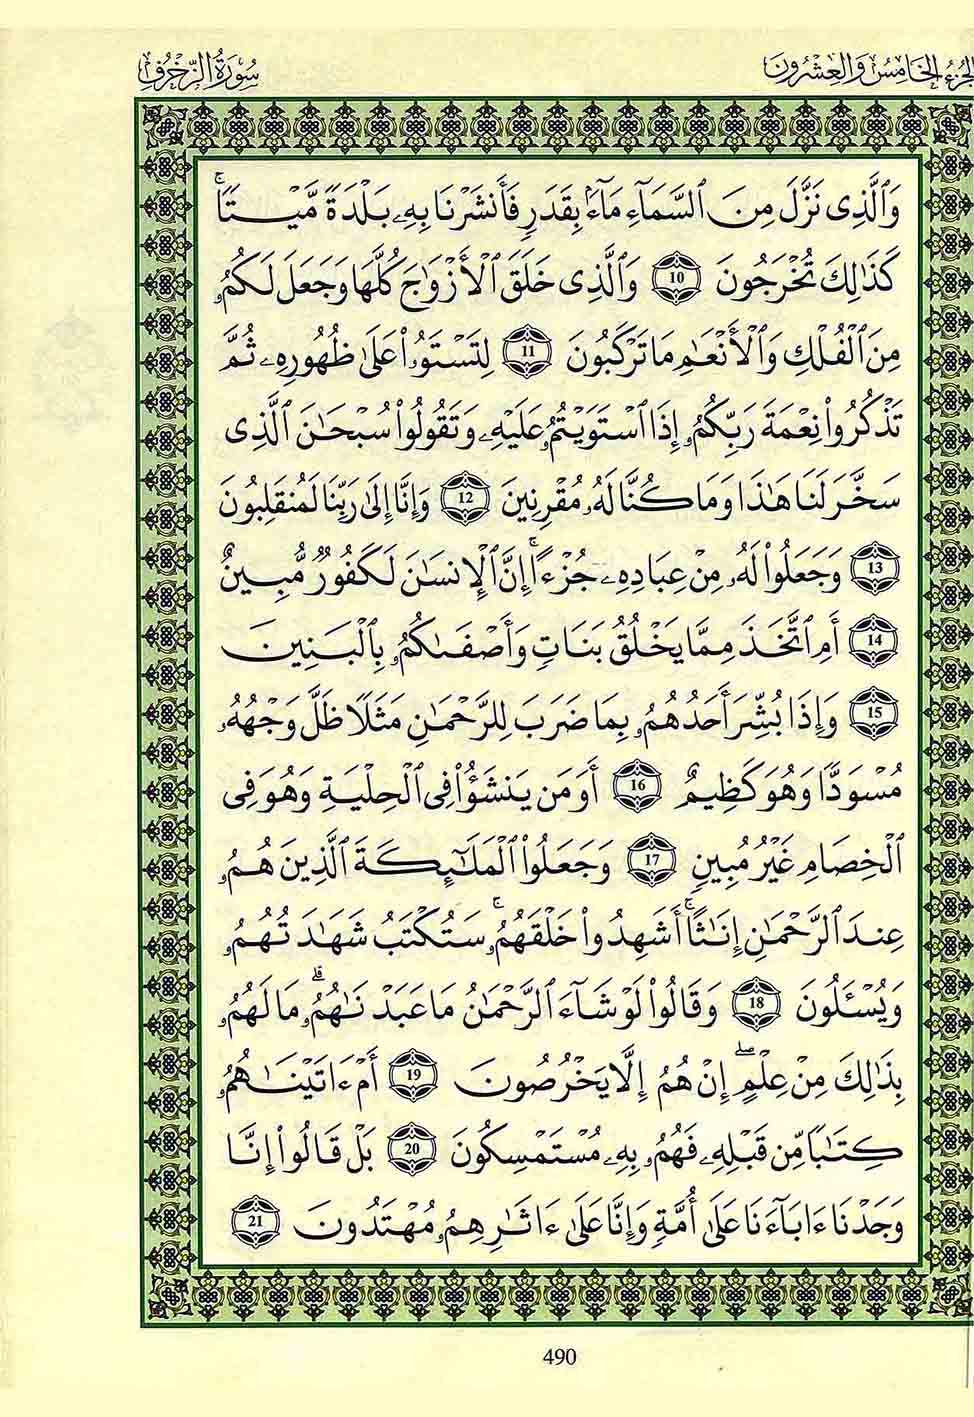 الجزء الخامس والعشرون
سورة الزخرف
وَٱلَّذِى نَزَّلَ مِنَ ٱلسَّمَآءِ مَآءَۢ بِقَدَرٍ فَأَنشَرْنَا بِهِۦ بَلْدَةً مَّيْتًاۚ
كَذَٰلِكَ تُخْرَجُونَ 10 وَٱلَّذِى خَلَقَ ٱلْأَزْوَٰجَ كُلَّهَا وَجَعَلَ لَكُمُۥ
مِنَ ٱلْفُلْكِ وَٱلْأَنْعَٰمِ مَا تَرْكَبُونَ 11 لِتَسْتَوُۥاْ عَلَىٰ ظُهُورِهِۦ ثُمَّ
تَذْكُرُواْ نِعْمَةَ رَبِّكُمُۥ إِذَا ٱسْتَوَيْتُمُۥ عَلَيْهِۦ وَتَقُولُواْ سُبْحَٰنَ ٱلَّذِى
سَخَّرَ لَنَا هَٰذَا وَمَا كُنَّا لَهُۥ مُقْرِنِينَ 12 وَإِنَّا إِلَىٰ رَبِّنَا لَمُنقَلِبُونَ
13 وَجَعَلُواْ لَهُۥ مِنْ عِبَادِهِۦ جُزْءًاۚ إِنَّ ٱلْإِنسَٰنَ لَكَفُورٌ مُّبِينٌ
14 أَمِ ٱتَّخَذَ مِمَّا يَخْلُقُ بَنَاتٍ وَأَصْفَىٰكُمُۥ بِٱلْبَنِينَ
15 وَإِذَا بُشِّرَ أَحَدُهُمُۥ بِمَا ضَرَبَ لِلرَّحْمَٰنِ مَثَلًا ظَلَّ وَجْهُهُۥ
مُسْوَدًّا وَهُوَ كَظِيمٌ 16 أَوَمَن يَنشَؤُاْ فِى ٱلْحِلْيَةِ وَهُوَ فِى
ٱلْخِصَامِ غَيْرُ مُبِينٍ 17 وَجَعَلُواْ ٱلْمَلَٰٓئِكَةَ ٱلَّذِينَ هُمُۥ
عِندَ ٱلرَّحْمَٰنِ إِنَٰثًاۚ أَشَهِدُواْ خَلْقَهُمُۥۚ سَتُكْتَبُ شَهَٰدَتُهُمُۥ
وَيُسْـَٔلُونَ 18 وَقَالُواْ لَوْ شَآءَ ٱلرَّحْمَٰنُ مَا عَبَدْنَٰهُمُۥۗ مَا لَهُمُۥ
بِذَٰلِكَ مِنْ عِلْمٍۖ إِنْ هُمُۥ إِلَّا يَخْرُصُونَ 19 أَمْ ءَاتَيْنَٰهُمُۥ
كِتَٰبًا مِّن قَبْلِهِۦ فَهُمُۥ بِهِۦ مُسْتَمْسِكُونَ 20 بَلْ قَالُواْ إِنَّا
وَجَدْنَا ءَابَآءَنَا عَلَىٰ أُمَّةٍ وَإِنَّا عَلَىٰ ءَاثَٰرِهِمُۥ مُهْتَدُونَ 21
490